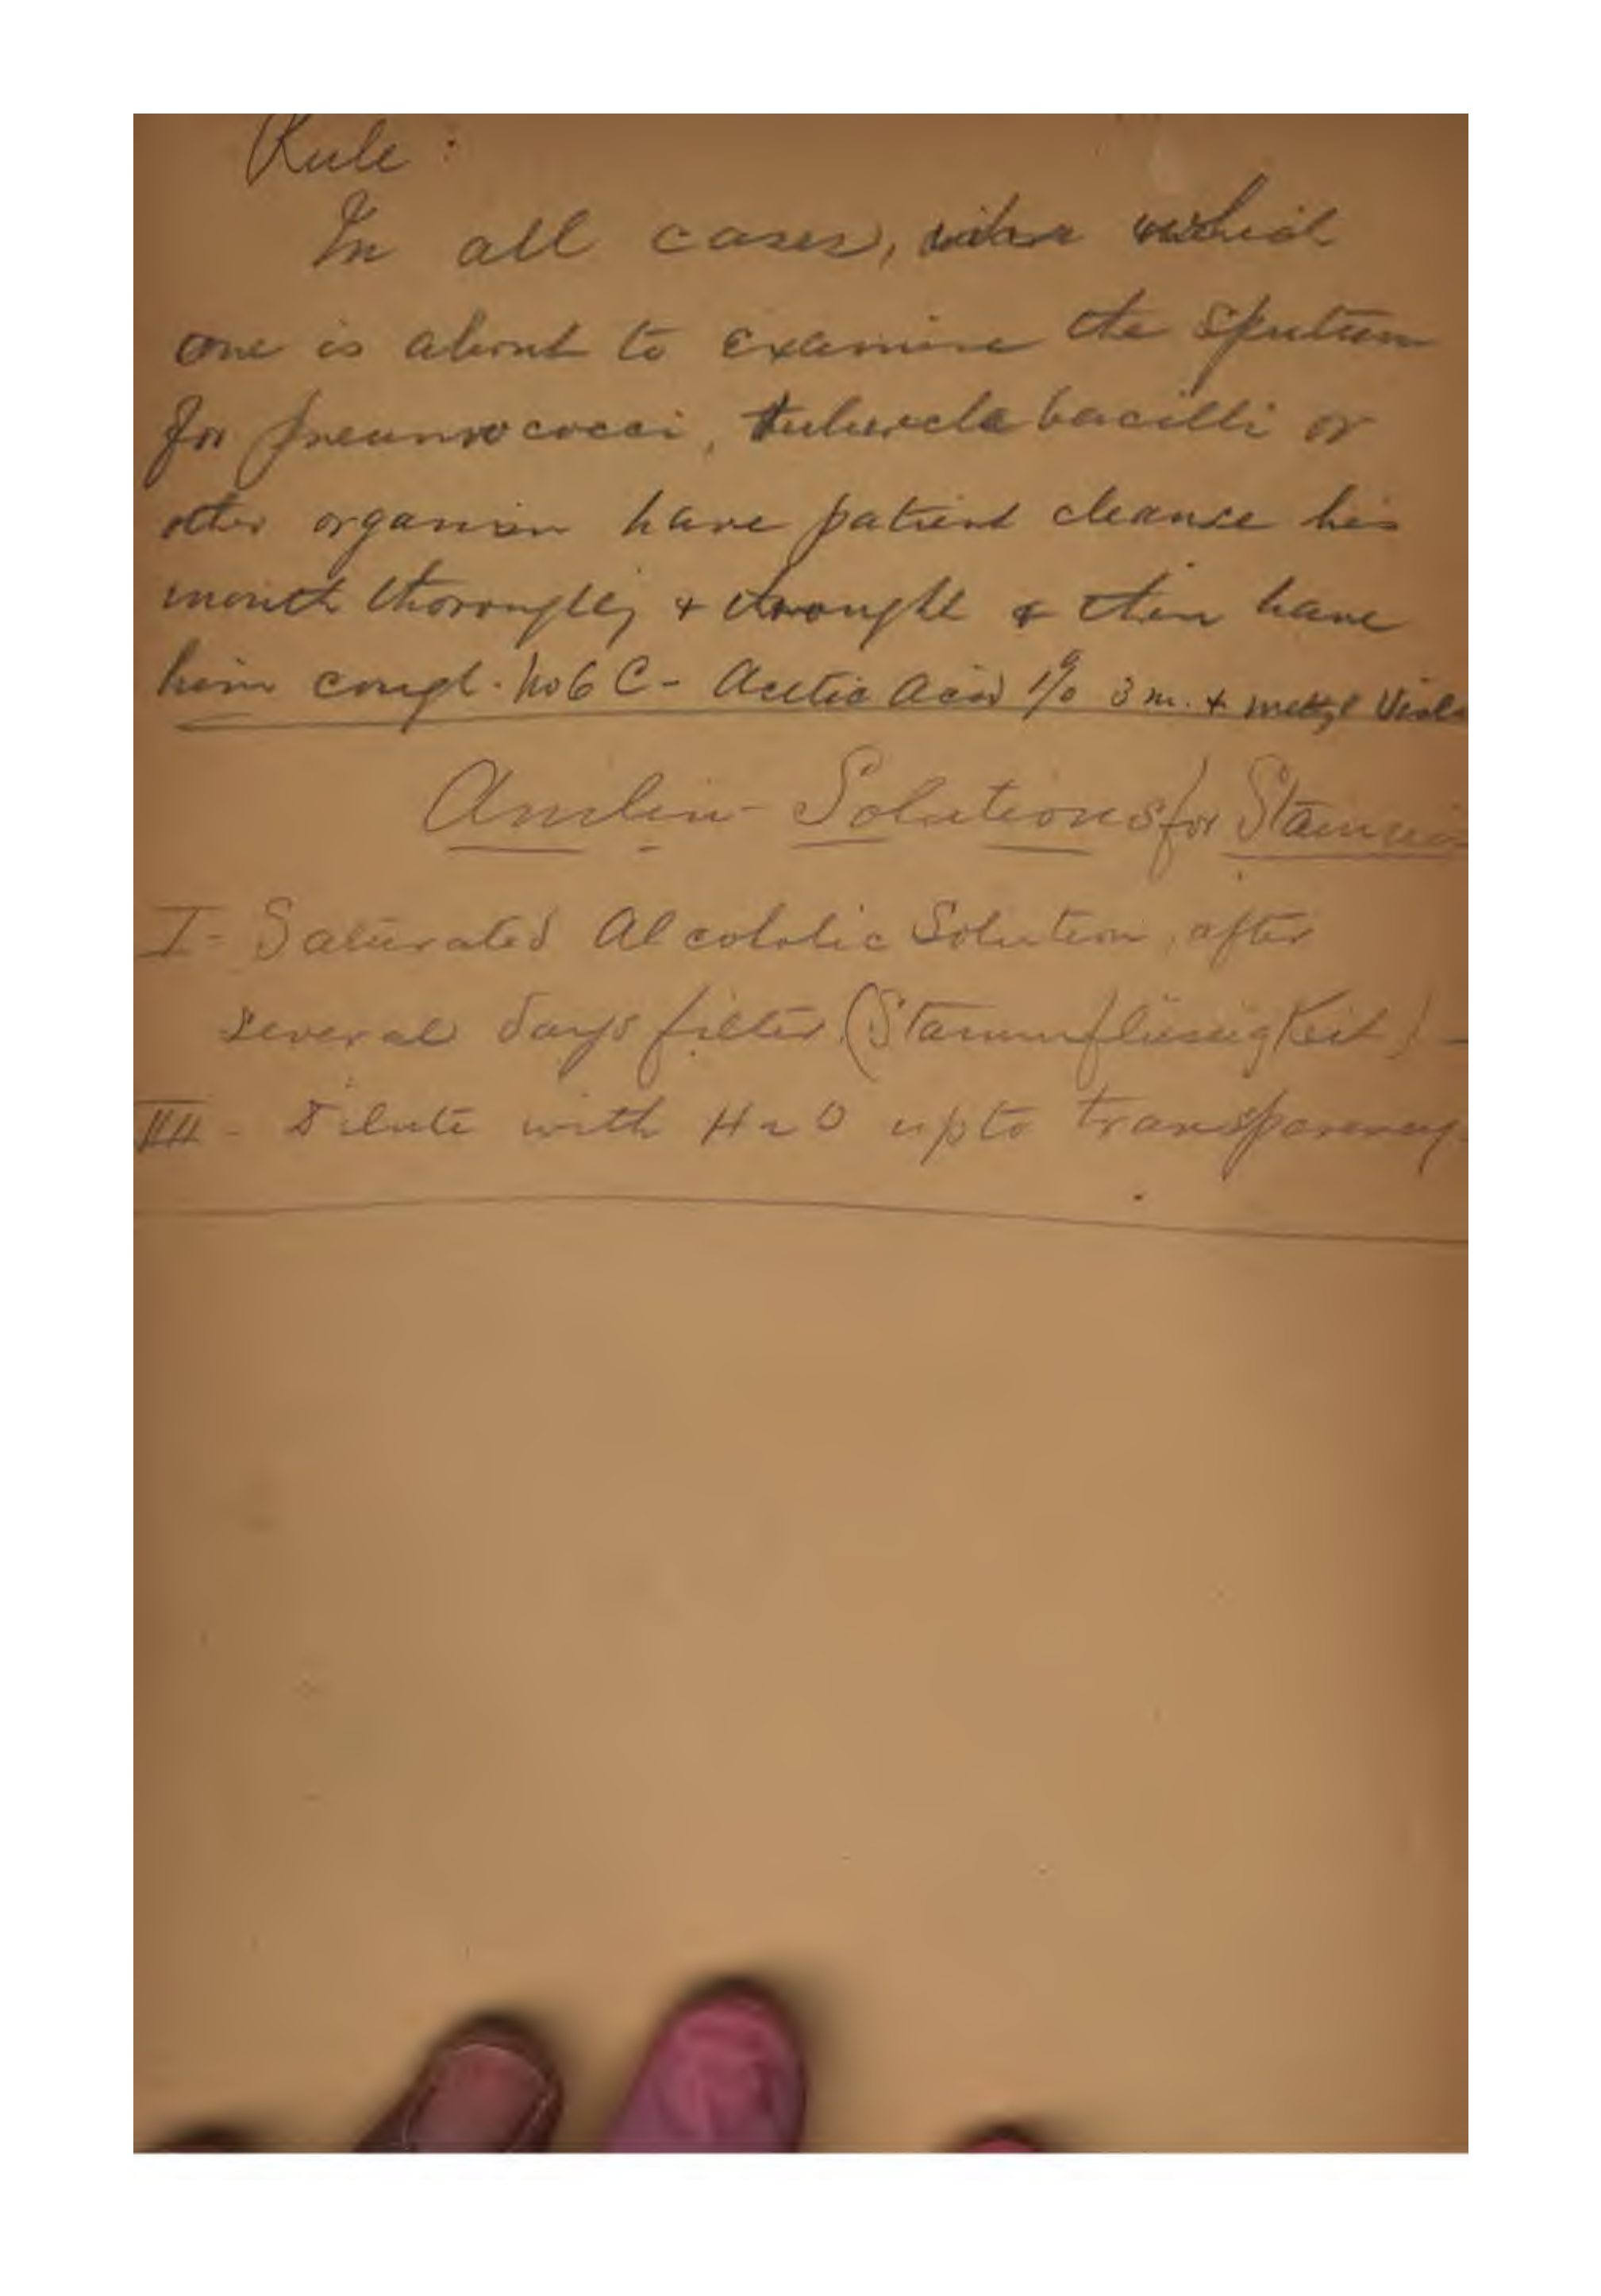 Rule :
In all cases, which
one is about to examine the sputum
for pneumococci, tubercle bacilli or
other organism have patient cleanse his
mouth thoroughly + & then have
him cough. No 6 C - Acetic Acid 1% 3 m. + methyl Viol
Anilin - Solutions for Staining
I - Saturated Alcoholic Solution, after
several days filter. (Stammflüssigkeit) -
III - Dilute with H2O up to transparency.